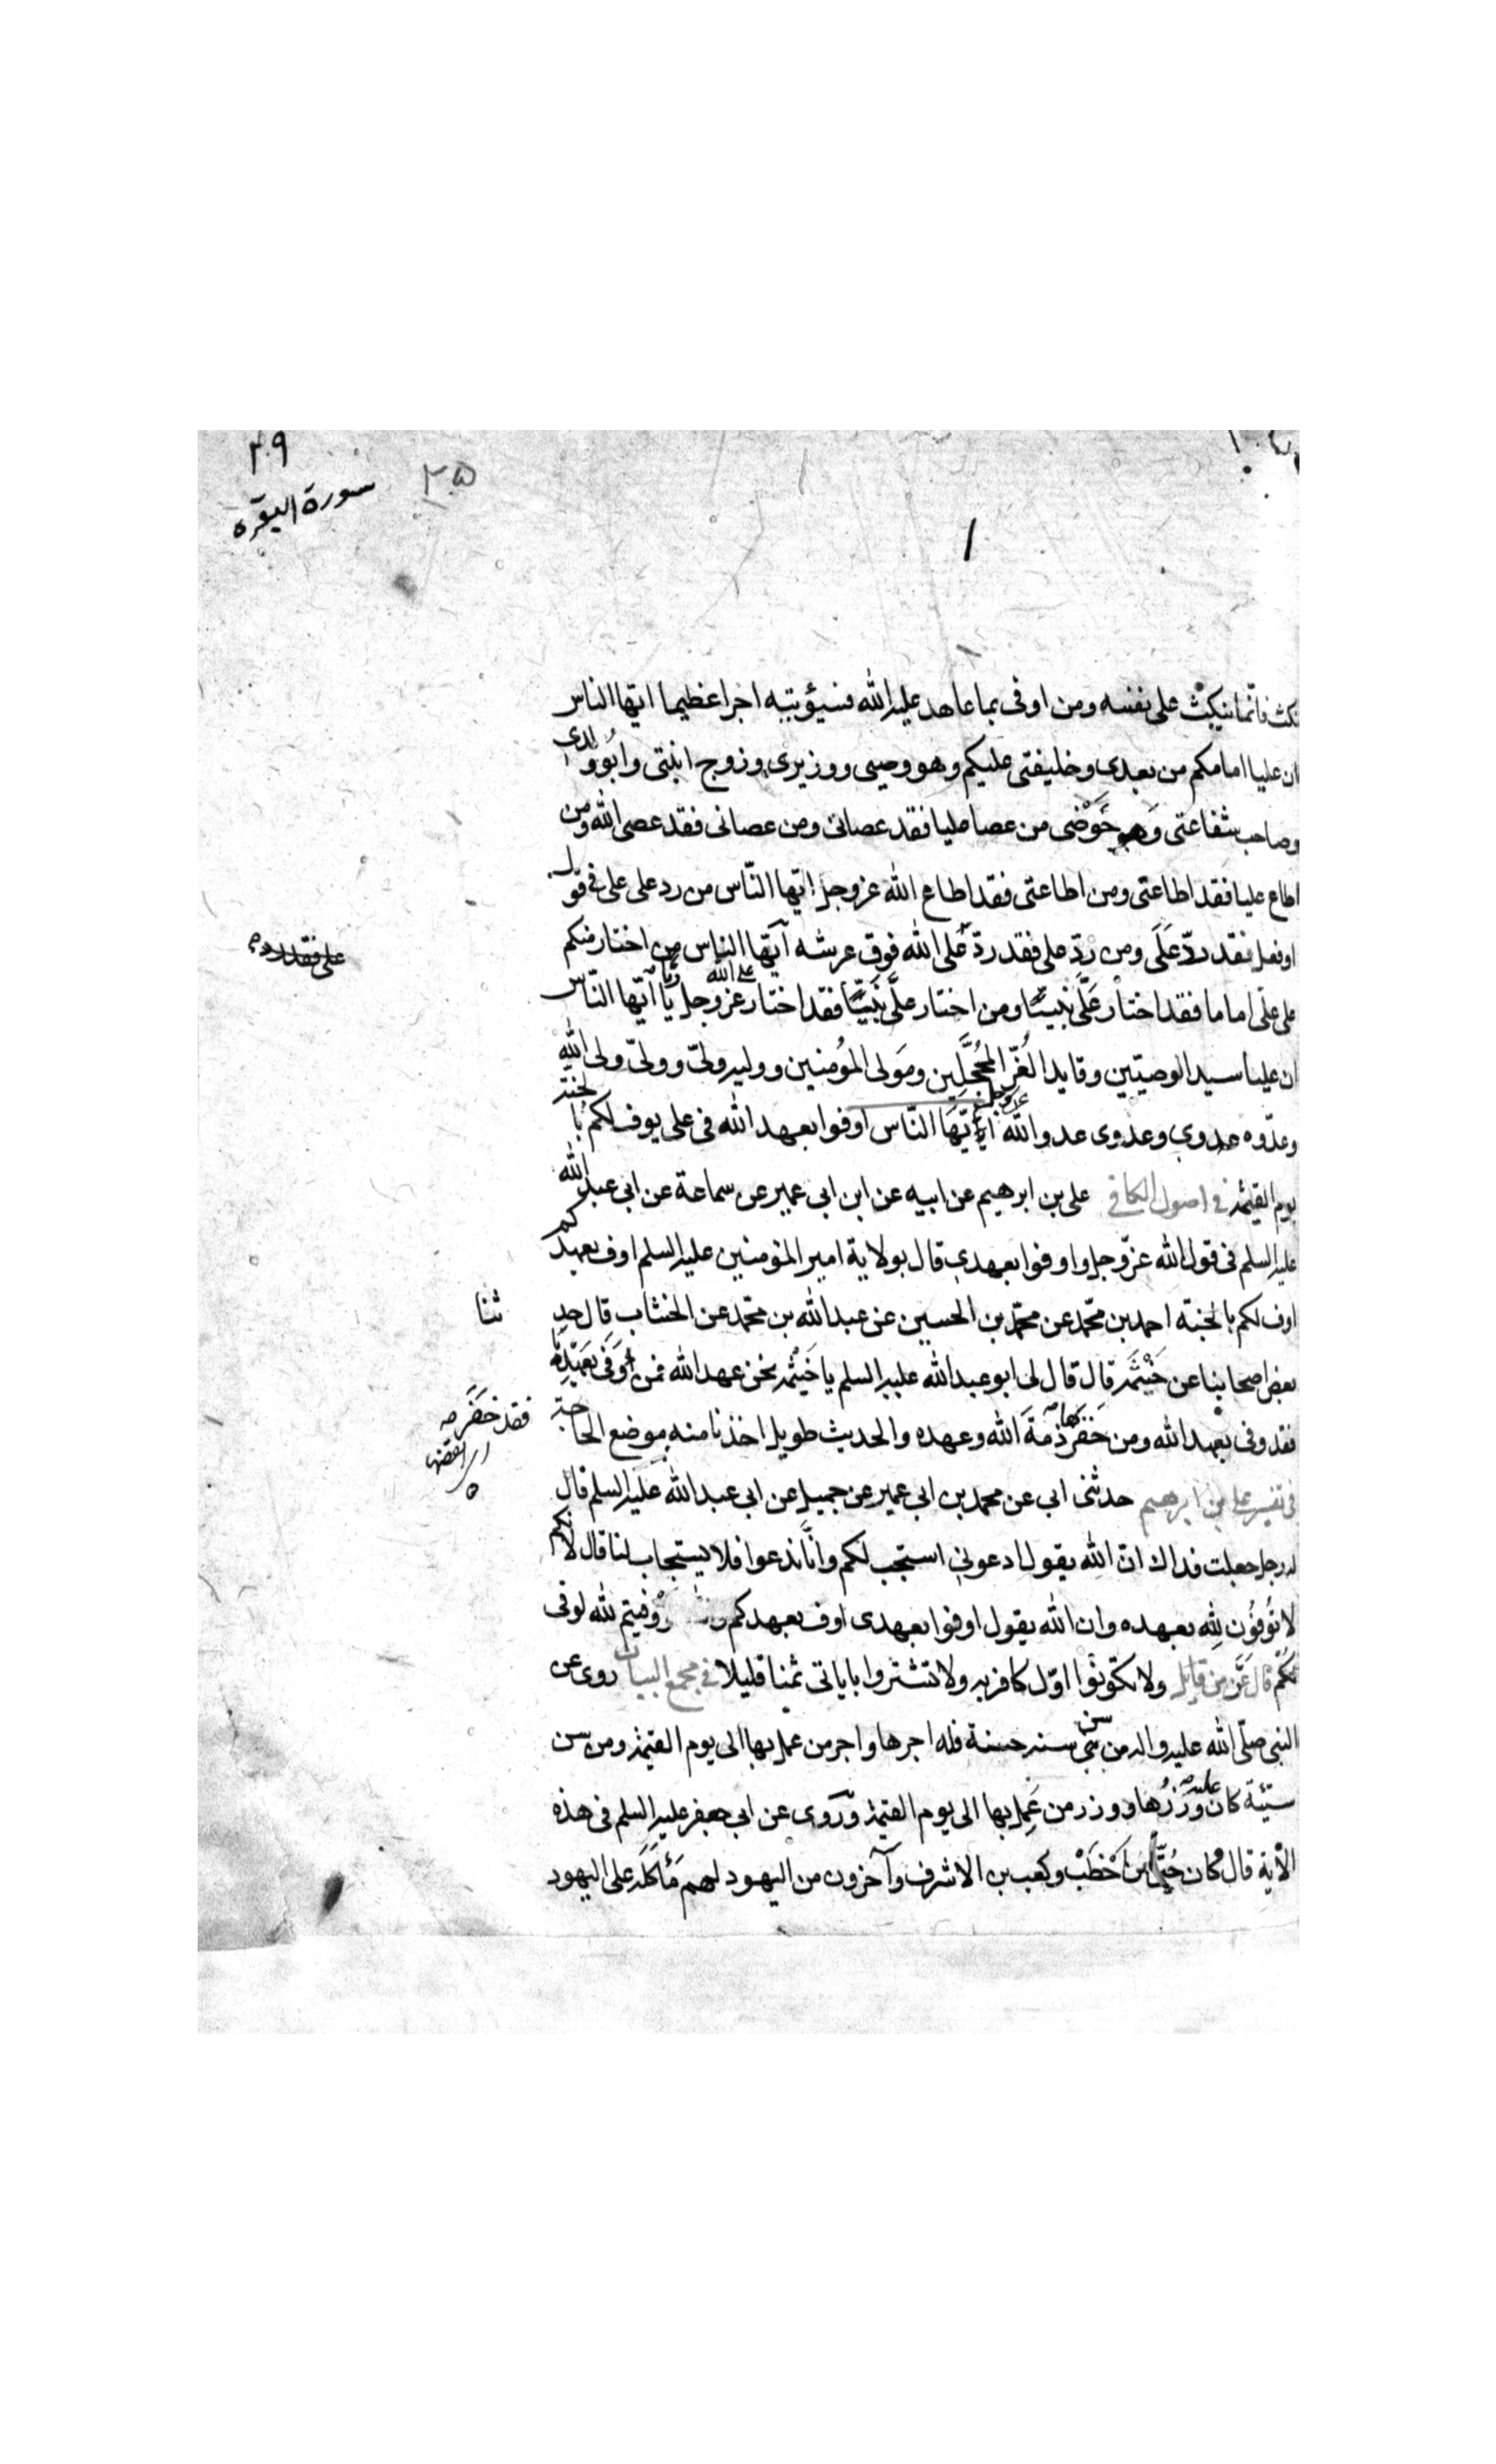 ٢٠٩
سورة البقرة
٢٥
نكث فانّما ينكث على نفسه ومن اوفى بما عاهد عليه الله فسيؤتيه اجرا عظيما ايّها الناس
ان عليا امامكم من بعدى وخليفتى عليكم وهو وصيى ووزيرى وزوج ابنتى وابو ولدى
وصاحب شفاعتى وحَوْضى من عصا عليا فقد عصانى ومن عصانى فقد عصى الله ومن
اطاع عليا فقد اطاعنى ومن اطاعنى فقد اطاع الله عزوجل ايّها النّاس من رد على على فى قول
او فعل فقد ردّ عَلَى ومن ردّ على فقد ردّ عَلى الله فوق عرشه ايّها الناس من اختار منكم
على علىّ اماما فقد اختار عَلَّى نبيّا ومن اختار علَّى نَبيّا فقد اختار على الله عزوجل ايّها النّاس
ان عليا سيد الوصيّين وقايد الغُرّ المحجَّلِين ومَولى المؤمنين ووليه ولىّ وولىّ ولى الله
وعدّوه عدوى وعدوى عدو الله عزوجل ايّهَا النّاس اوفوا بعهد الله فى على يوف لكم بالجنة
يوم القيمة فى اصول الكافى على بن ابرهيم عن ابيه عن ابن ابى عمير عن سماعة عن ابى عبد الله
عليه السلم فى قول الله عزّوجل واوفوا بعهدى قال بولاية امير المؤمنين عليه السلم اوف بعهدكم
اوف لكم بالجنة احمد بن محمّد عن محمّد بن الحسين عن عبد الله بن محمّد عن الخشاب قال حد
ثنا
بعض اصحابنا عن خَيْثَمَة قال قال لى ابو عبد الله عليه السلم يا خَيْثمة نحن عهد الله فمن اوفى بعهدنا
فقد وفى بعهد الله ومن خفرها فقد خفر ذمةَ الله وعهده والحديث طويل اخذنا منه موضع الحاجة
فى تفسير على بن ابرهيم حدثنى ابى عن محمد بن ابى عمير عن جميل عن ابى عبد الله عَليه السلم قال
له رجل جعلت فداك انّ الله يقول ادعونى استجب لكم وانّا ندعوا فلا يستجاب لنا قال لانكم
لا تُوفوُن لله بعهده وان الله يقول اوفوا بعهدى اوف بعهدكم وفيتم لله لوفى
لكم قال عَزّ من قايل ولا تكوّنوُا اوّل كافر به ولا تشتروا باياتى ثمنا قليلا فى مجمع البيان روى عن
النبى صلّى الله عليه واله من سن سنة حسنة فله اجرها واجر من عمل بها الى يوم القيمة ومن سن
سيّئة كان عليه وزرُها ووزر من عَمِل بها الى يوم القيمة وروى عن ابى جعفر عليه السلم فى هذه
الأية قال كان حُيّى ابن اَخْطَبْ وكعب بن الاشرف وآخرون من اليهود لهم مَأكَلَة على اليهود